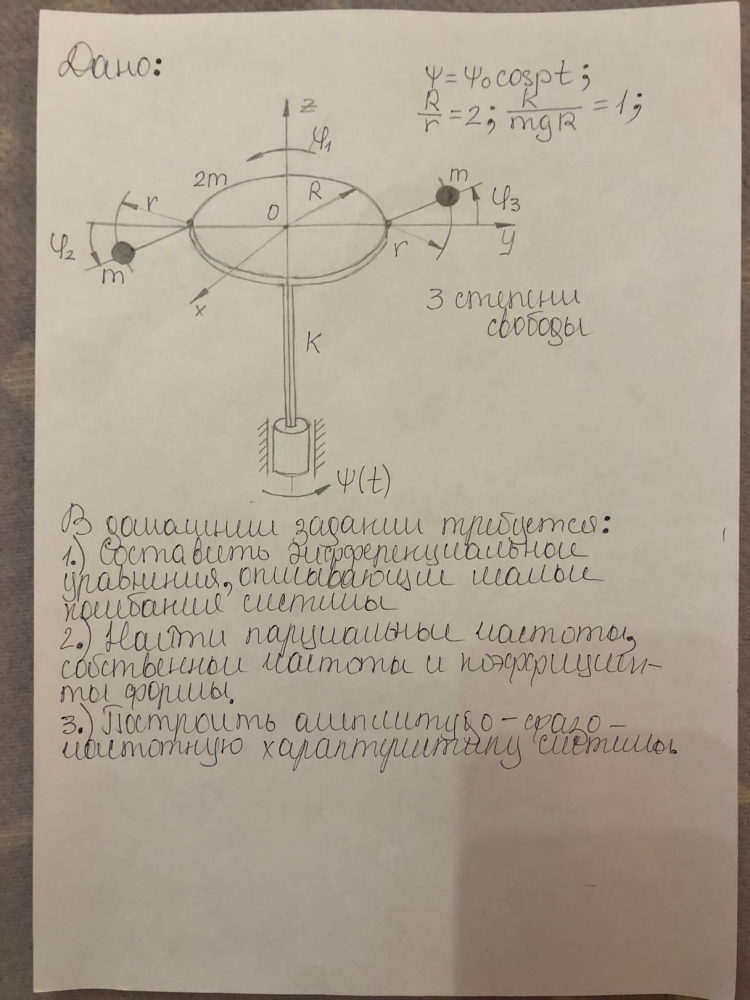 Дано:
ψ = ψ₀cospt;
R/r = 2; k/mgR = 1;
z
φ₁
2m
R
m
r
O
φ₃
φ₂
r
y
m
x
3 степени
свободы
K
ψ(t)
В домашнем задании требуется:
1.) Составить дифференциальные
уравнения, описывающие малые
колебания системы
2.) Найти парциальные частоты,
собственные частоты и коэффициен-
ты формы.
3.) Построить амплитудо-фазо-
частотную характеристику системы.